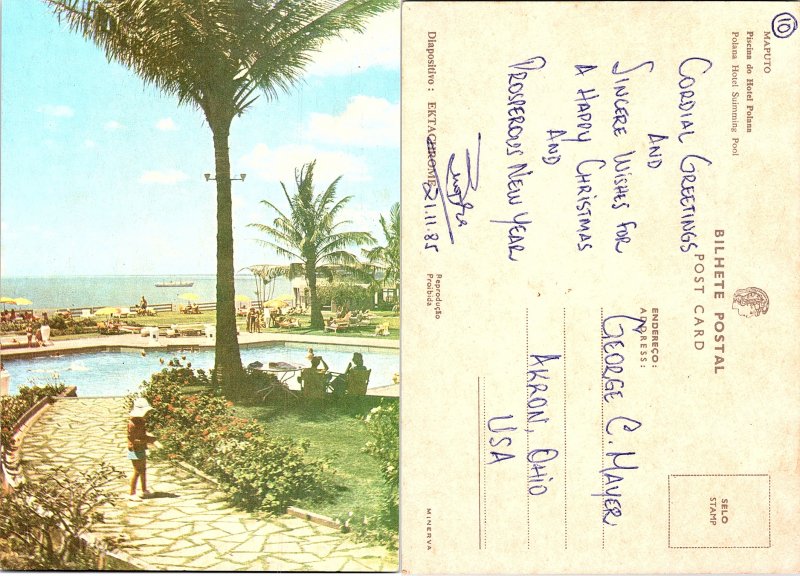 10
MAPUTO
Piscina do Hotel Polana
Polana Hotel Suimming Pool
BILHETE POSTAL
POST CARD
CORDIAL GREETINGS
AND
SINCERE WISHES FOR
A HAPPY CHRISTMAS
AND
PROSPEROUS NEW YEAR
21.11.85
Diapositivo: EKTACHROME
Reprodução
Proibida
MINERVA
SELO
STAMP
ENDEREÇO:
ADDRESS:
GEORGE C. MAYER
AKRON, OHIO
USA